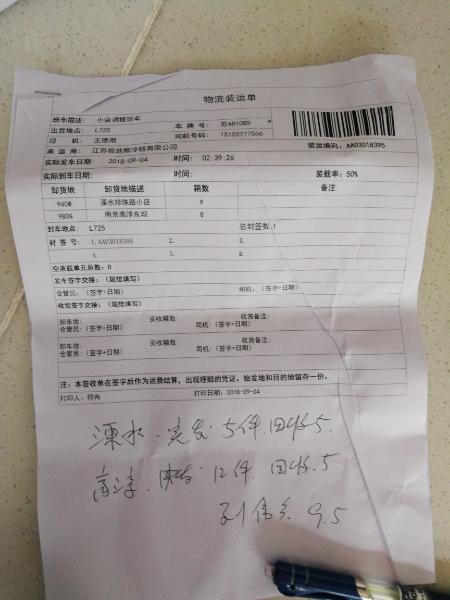 物流装运单
班车描述: 小店调拨班车
出货地点: L725 车 牌 号: 苏AR10B5
司 机: 王德雨 司机号码: 15150777566
承 运 商: 江苏极地熊冷链有限公司 装运编码: AA03018395
实际发车日期: 2018-09-04 时间: 02:39:26
实际到车日期: 时间: 装载率: 50%
卸货地 卸货地描述 箱数 备注
940# 溧水珍珠路小店 9
980# 南京高淳东坝 8
封车地点: L725 总封签数:1
封 签 号: 1.AA03018395 2. 3.
4. 5. 6.
空承载单元总数: 0
发车签字交接: (规范填写)
仓管员: (签字+日期) 司机: (签字+日期)
收货签字交接: (规范填写)
卸车地: 实收箱数: 收货备注:
仓管员: (签字+日期) 司机: (签字+日期)
卸车地: 实收箱数: 收货备注:
仓管员: (签字+日期) 司机: (签字+日期)
注: 本签收单在签字后作为运费结算, 出现理赔的凭证。始发地和目的地留存一份。
打印人: 符冉 打印日期: 2018-09-04
溧水. 实发 5件. 回收5.
高淳. 12件 回收.5
9.5